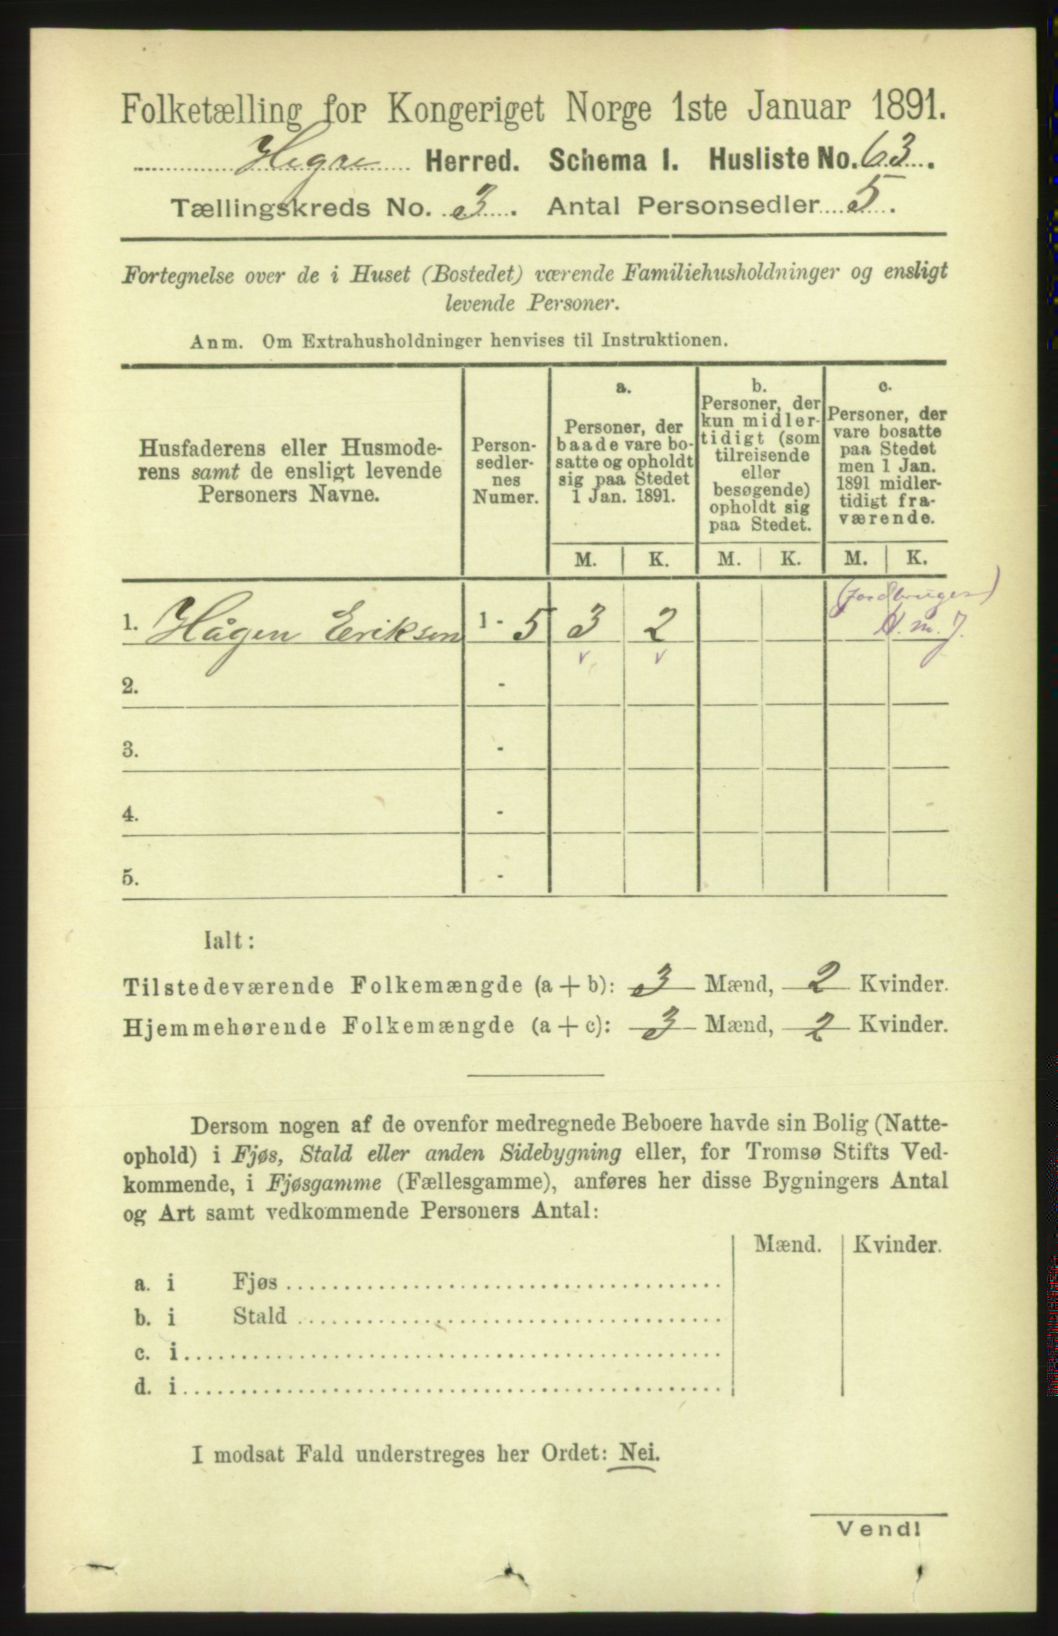 Folketælling for Kongeriget Norge 1ste Januar 1891.
Hegre Herred. Schema I. Husliste No. 63.
Tællingskreds No. 3. Antal Personsedler 5.
Fortegnelse over de i Huset (Bostedet) værende Familiehusholdninger og ensligt
levende Personer.
Anm. Om Extrahusholdninger henvises til Instruktionen.
Husfaderens eller Husmode-
rens samt de ensligt levende
Personers Navne.
Person-
sedler-
nes
Numer.
a.
Personer, der
baade vare bo-
satte og opholdt
sig paa Stedet
1 Jan. 1891.
b.
Personer, der
kun midler-
tidigt (som
tilreisende
eller
besøgende)
opholdt sig
paa Stedet.
c.
Personer, der
vare bosatte
paa Stedet
men 1 Jan.
1891 midler-
tidigt fra-
værende.
M. K. M. K. M. K.
(Jordbruger)
1. Hågen Eriksen 1 - 5 3 2 H. m. J.
2. -
3. -
4. -
5. -
Ialt:
Tilstedeværende Folkemængde (a + b): 3 Mænd, 2 Kvinder.
Hjemmehørende Folkemængde (a + c): 3 Mænd, 2 Kvinder.
Dersom nogen af de ovenfor medregnede Beboere havde sin Bolig (Natte-
ophold) i Fjøs, Stald eller anden Sidebygning eller, for Tromsø Stifts Ved-
kommende, i Fjøsgamme (Fællesgamme), anføres her disse Bygningers Antal
og Art samt vedkommende Personers Antal:
Mænd. Kvinder.
a. i Fjøs
b. i Stald
c. i
d. i
I modsat Fald understreges her Ordet: Nei.
Vend!